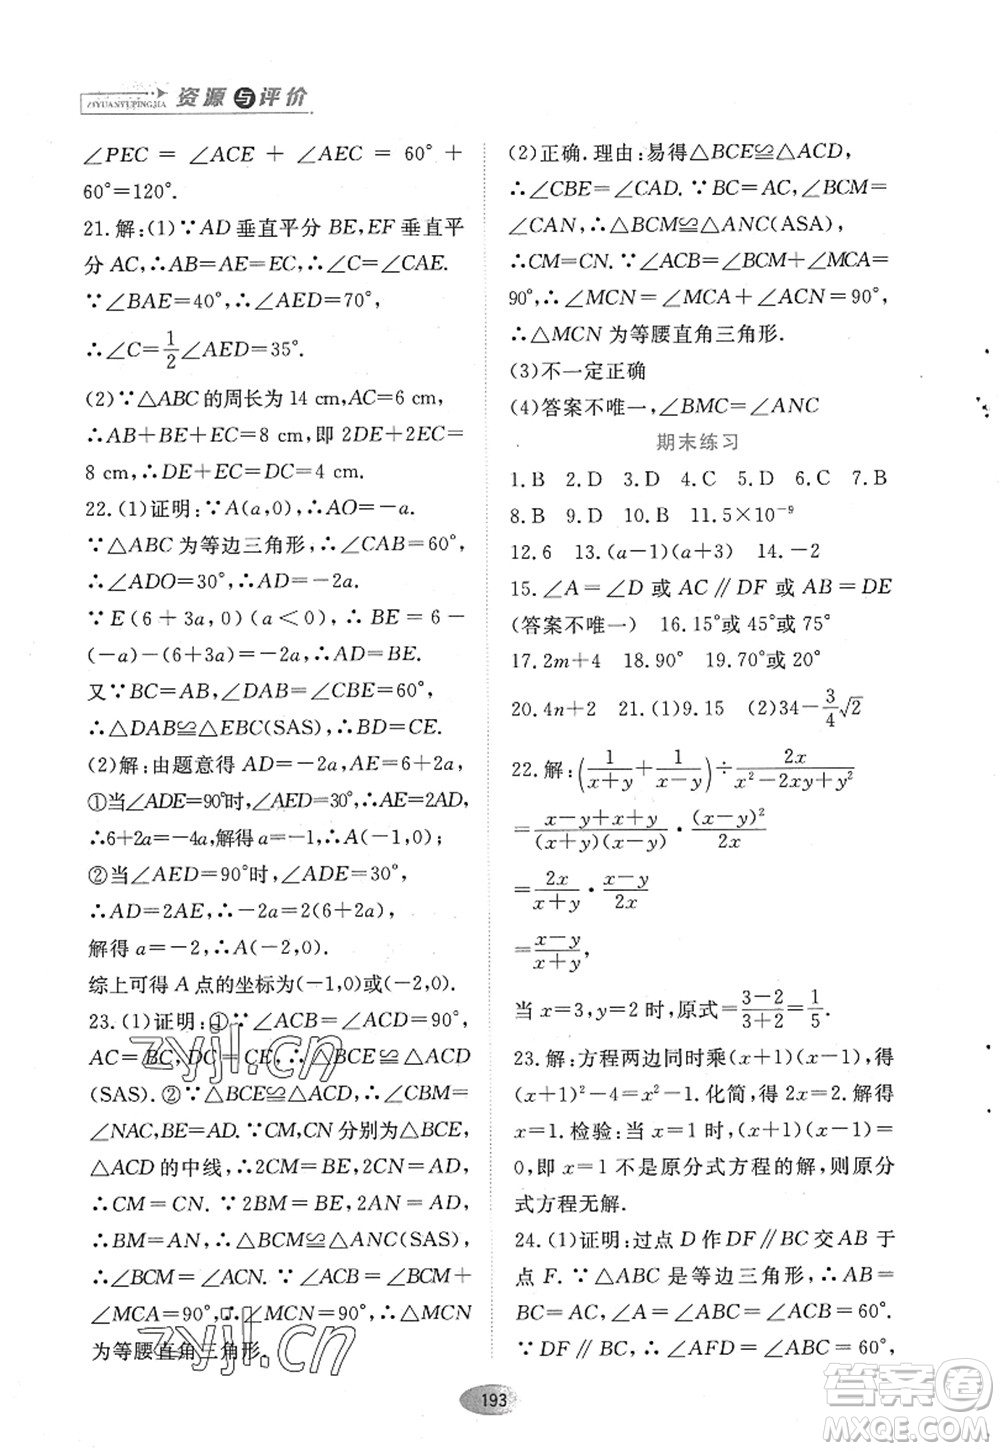 ZIYUANYUPINGJIA 资源与评价
∠PEC = ∠ACE + ∠AEC = 60° +
60°=120°.
21.解:(1)∵AD垂直平分BE,EF垂直平
分AC,∴AB=AE=EC,∴∠C=∠CAE.
∵∠BAE=40°,∴∠AED=70°,
∴∠C=1/2∠AED=35°.
(2)∵△ABC的周长为14 cm,AC=6 cm,
∴AB+BE+EC=8 cm,即2DE+2EC=
8 cm,∴DE+EC=DC=4 cm.
22.(1)证明:∵A(a,0),∴AO=-a.
∵△ABC为等边三角形,∴∠CAB=60°,
∴∠ADO=30°,∴AD=-2a.
∵E(6+3a,0)(a<0),∴BE=6-
(-a)-(6+3a)=-2a,∴AD=BE.
又∵BC=AB,∠DAB=∠CBE=60°,
∴△DAB≌△EBC(SAS),∴BD=CE.
(2)解:由题意得AD=-2a,AE=6+2a,
①当∠ADE=90°时,∠AED=30°,∴AE=2AD,
∴6+2a=-4a,解得a=-1,∴A(-1,0);
②当∠AED=90°时,∠ADE=30°,
∴AD=2AE,∴-2a=2(6+2a),
解得a=-2,∴A(-2,0).
综上可得A点的坐标为(-1,0)或(-2,0).
23.(1)证明:①∵∠ACB=∠ACD=90°,
AC=BC,DC=CE,∴△BCE≌△ACD
(SAS).②∵△BCE≌△ACD,∴∠CBM=
∠NAC,BE=AD.∵CM,CN分别为△BCE,
△ACD的中线,∴2CM=BE,2CN=AD,
∴CM=CN.∵2BM=BE,2AN=AD,
∴BM=AN,∴△BMC≌△ANC(SAS),
∴∠BCM=∠ACN.∵∠BCM+
∠MCA=90°,∴∠MCN=90°,∴△MCN
为等腰直角三角形.
(2)正确.理由:易得△BCE≌△ACD,
∴∠CBE=∠CAD.∵BC=AC,∠BCM=
∠CAN,∴△BCM≌△ANC(ASA),
∴CM=CN.∵∠ACB=∠BCM+∠MCA=
90°,∴∠MCN=∠MCA+∠ACN=90°,
∴△MCN为等腰直角三角形.
(3)不一定正确
(4)答案不唯一,∠BMC=∠ANC
期末练习
1.B 2.D 3.A 4.C 5.D 6.C 7.B
8.B 9.D 10.B 11.5×10⁻⁹
12.6 13.(a-1)(a+3) 14.-2
15.∠A=∠D或AC∥DF或AB=DE
(答案不唯一) 16.15°或45°或75°
17.2m+4 18.90° 19.70°或20°
20.4n+2 21.(1)9.15 (2)34-3/4√2
22.解:(1/(x+y)+1/(x-y))÷2x/(x²-2xy+y²)
=(x-y+x+y)/((x+y)(x-y))·(x-y)²/2x
=2x/(x+y)·(x-y)/2x
=(x-y)/(x+y),
当x=3,y=2时,原式=(3-2)/(3+2)=1/5.
23.解:方程两边同时乘(x+1)(x-1),得
(x+1)²-4=x²-1.化简,得2x=2.解得
x=1.检验:当x=1时,(x+1)(x-1)=
0,即x=1不是原分式方程的解,则原分
式方程无解.
24.(1)证明:过点D作DF∥BC交AB于
点F.∵△ABC是等边三角形,∴AB=
BC=AC,∠A=∠ABC=∠ACB=60°.
∵DF∥BC,∴∠AFD=∠ABC=60°,
193
zyjl.cn
zyjl.cn
答案圈
MXQE.COM